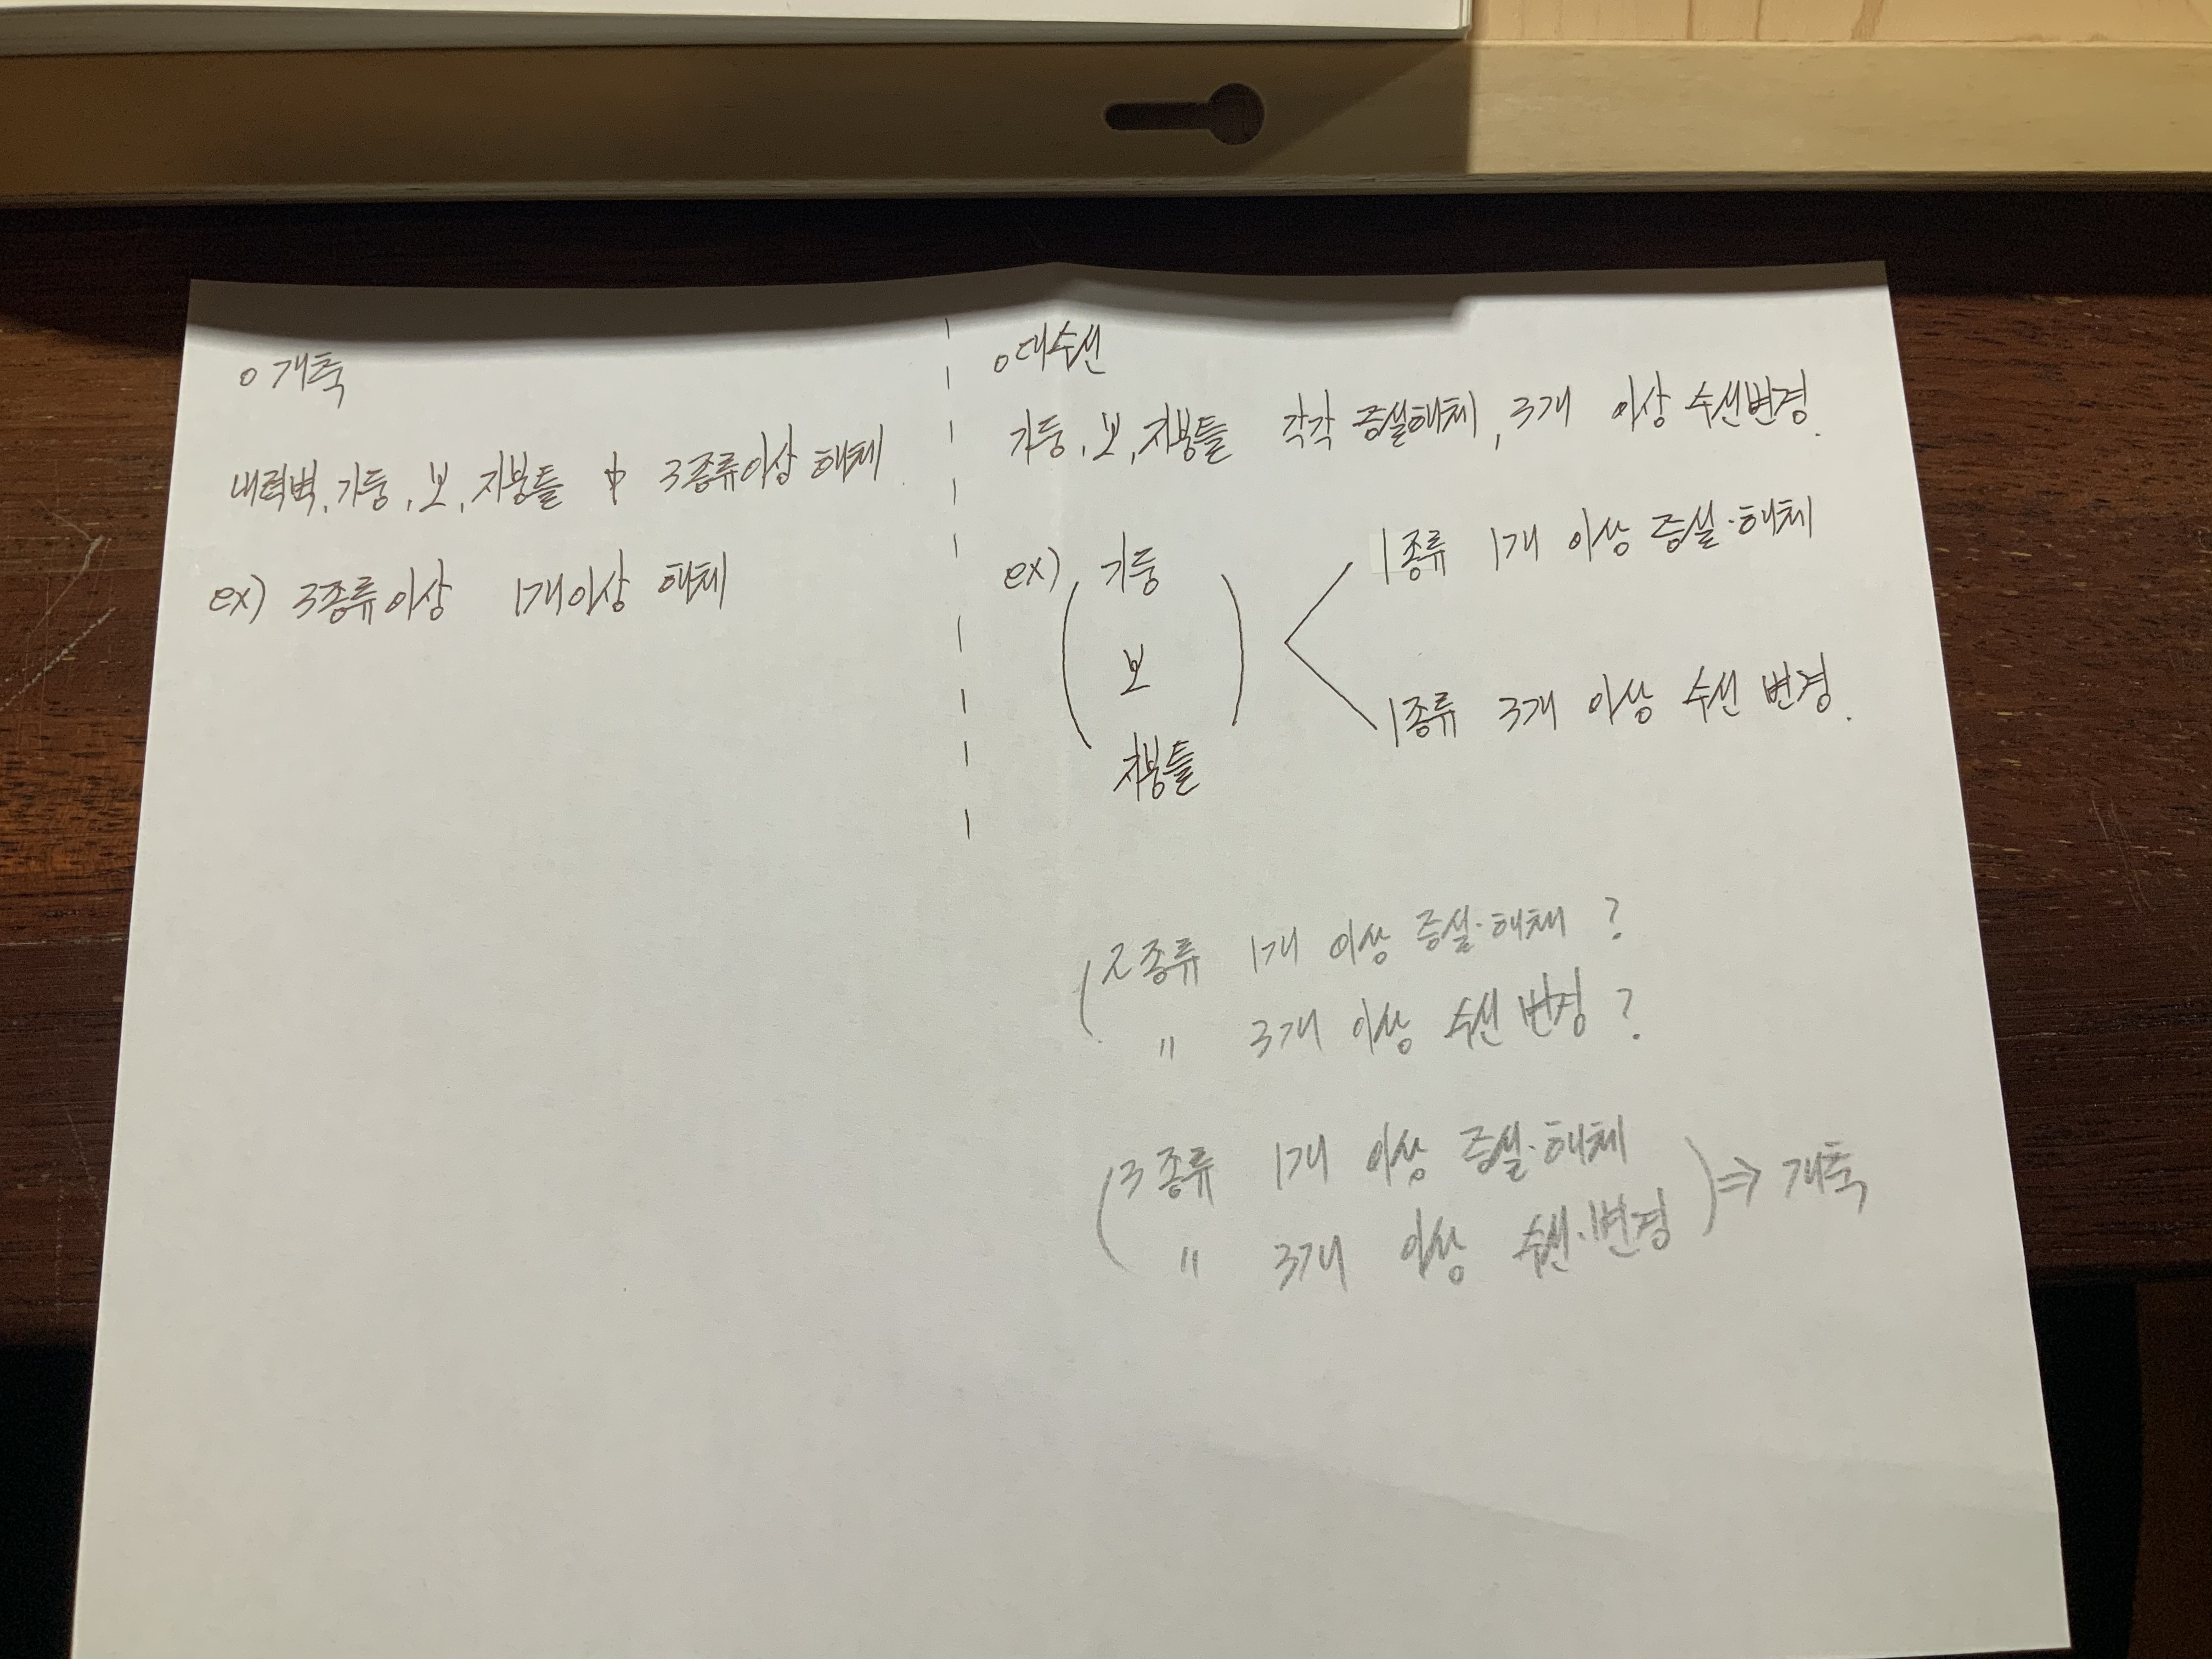 o 개축
내력벽, 기둥, 보, 지붕틀 中 3종류이상 해체.
ex) 3종류이상 1개이상 해체
o 대수선
기둥, 보, 지붕틀 각각 증설해체, 3개 이상 수선변경.
ex) ( 기둥
보
지붕틀 )
1종류 1개 이상 증설·해체
1종류 3개 이상 수선 변경.
( 2종류 1개 이상 증설·해체 ?
〃 3개 이상 수선 변경 ?
( 3종류 1개 이상 증설·해체
〃 3개 이상 수선·변경 ) ⇒ 개축